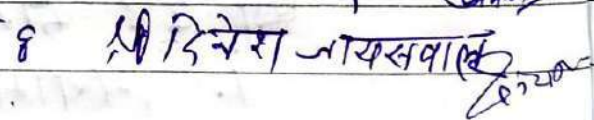 8 श्री दिनेश जायसवाल